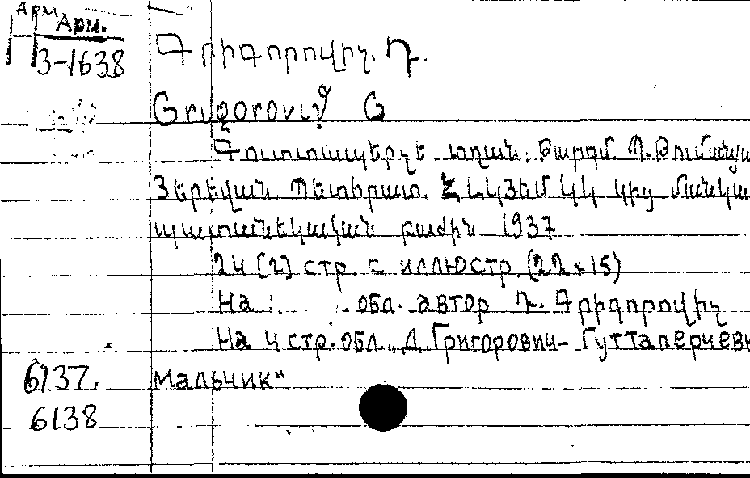 Арм
Арм.
3-1638
Գրիգորովիչ. Դ.
Grigorovič G
Գուտտապերչե տղան. Թարգմ Պ.
Յերեվան. Պետհրատ. ՀԼԿՅԵՄ ԿԿ կից մանկա
պատանեկական բաժին 1937
24 [2] стр. с иллюстр. (22×15)
На обл. автор Դ. Գրիգորովիչ
На 4 стр. обл. „Д Григорович- Гуттаперчевы
6137. мальчик"
6138